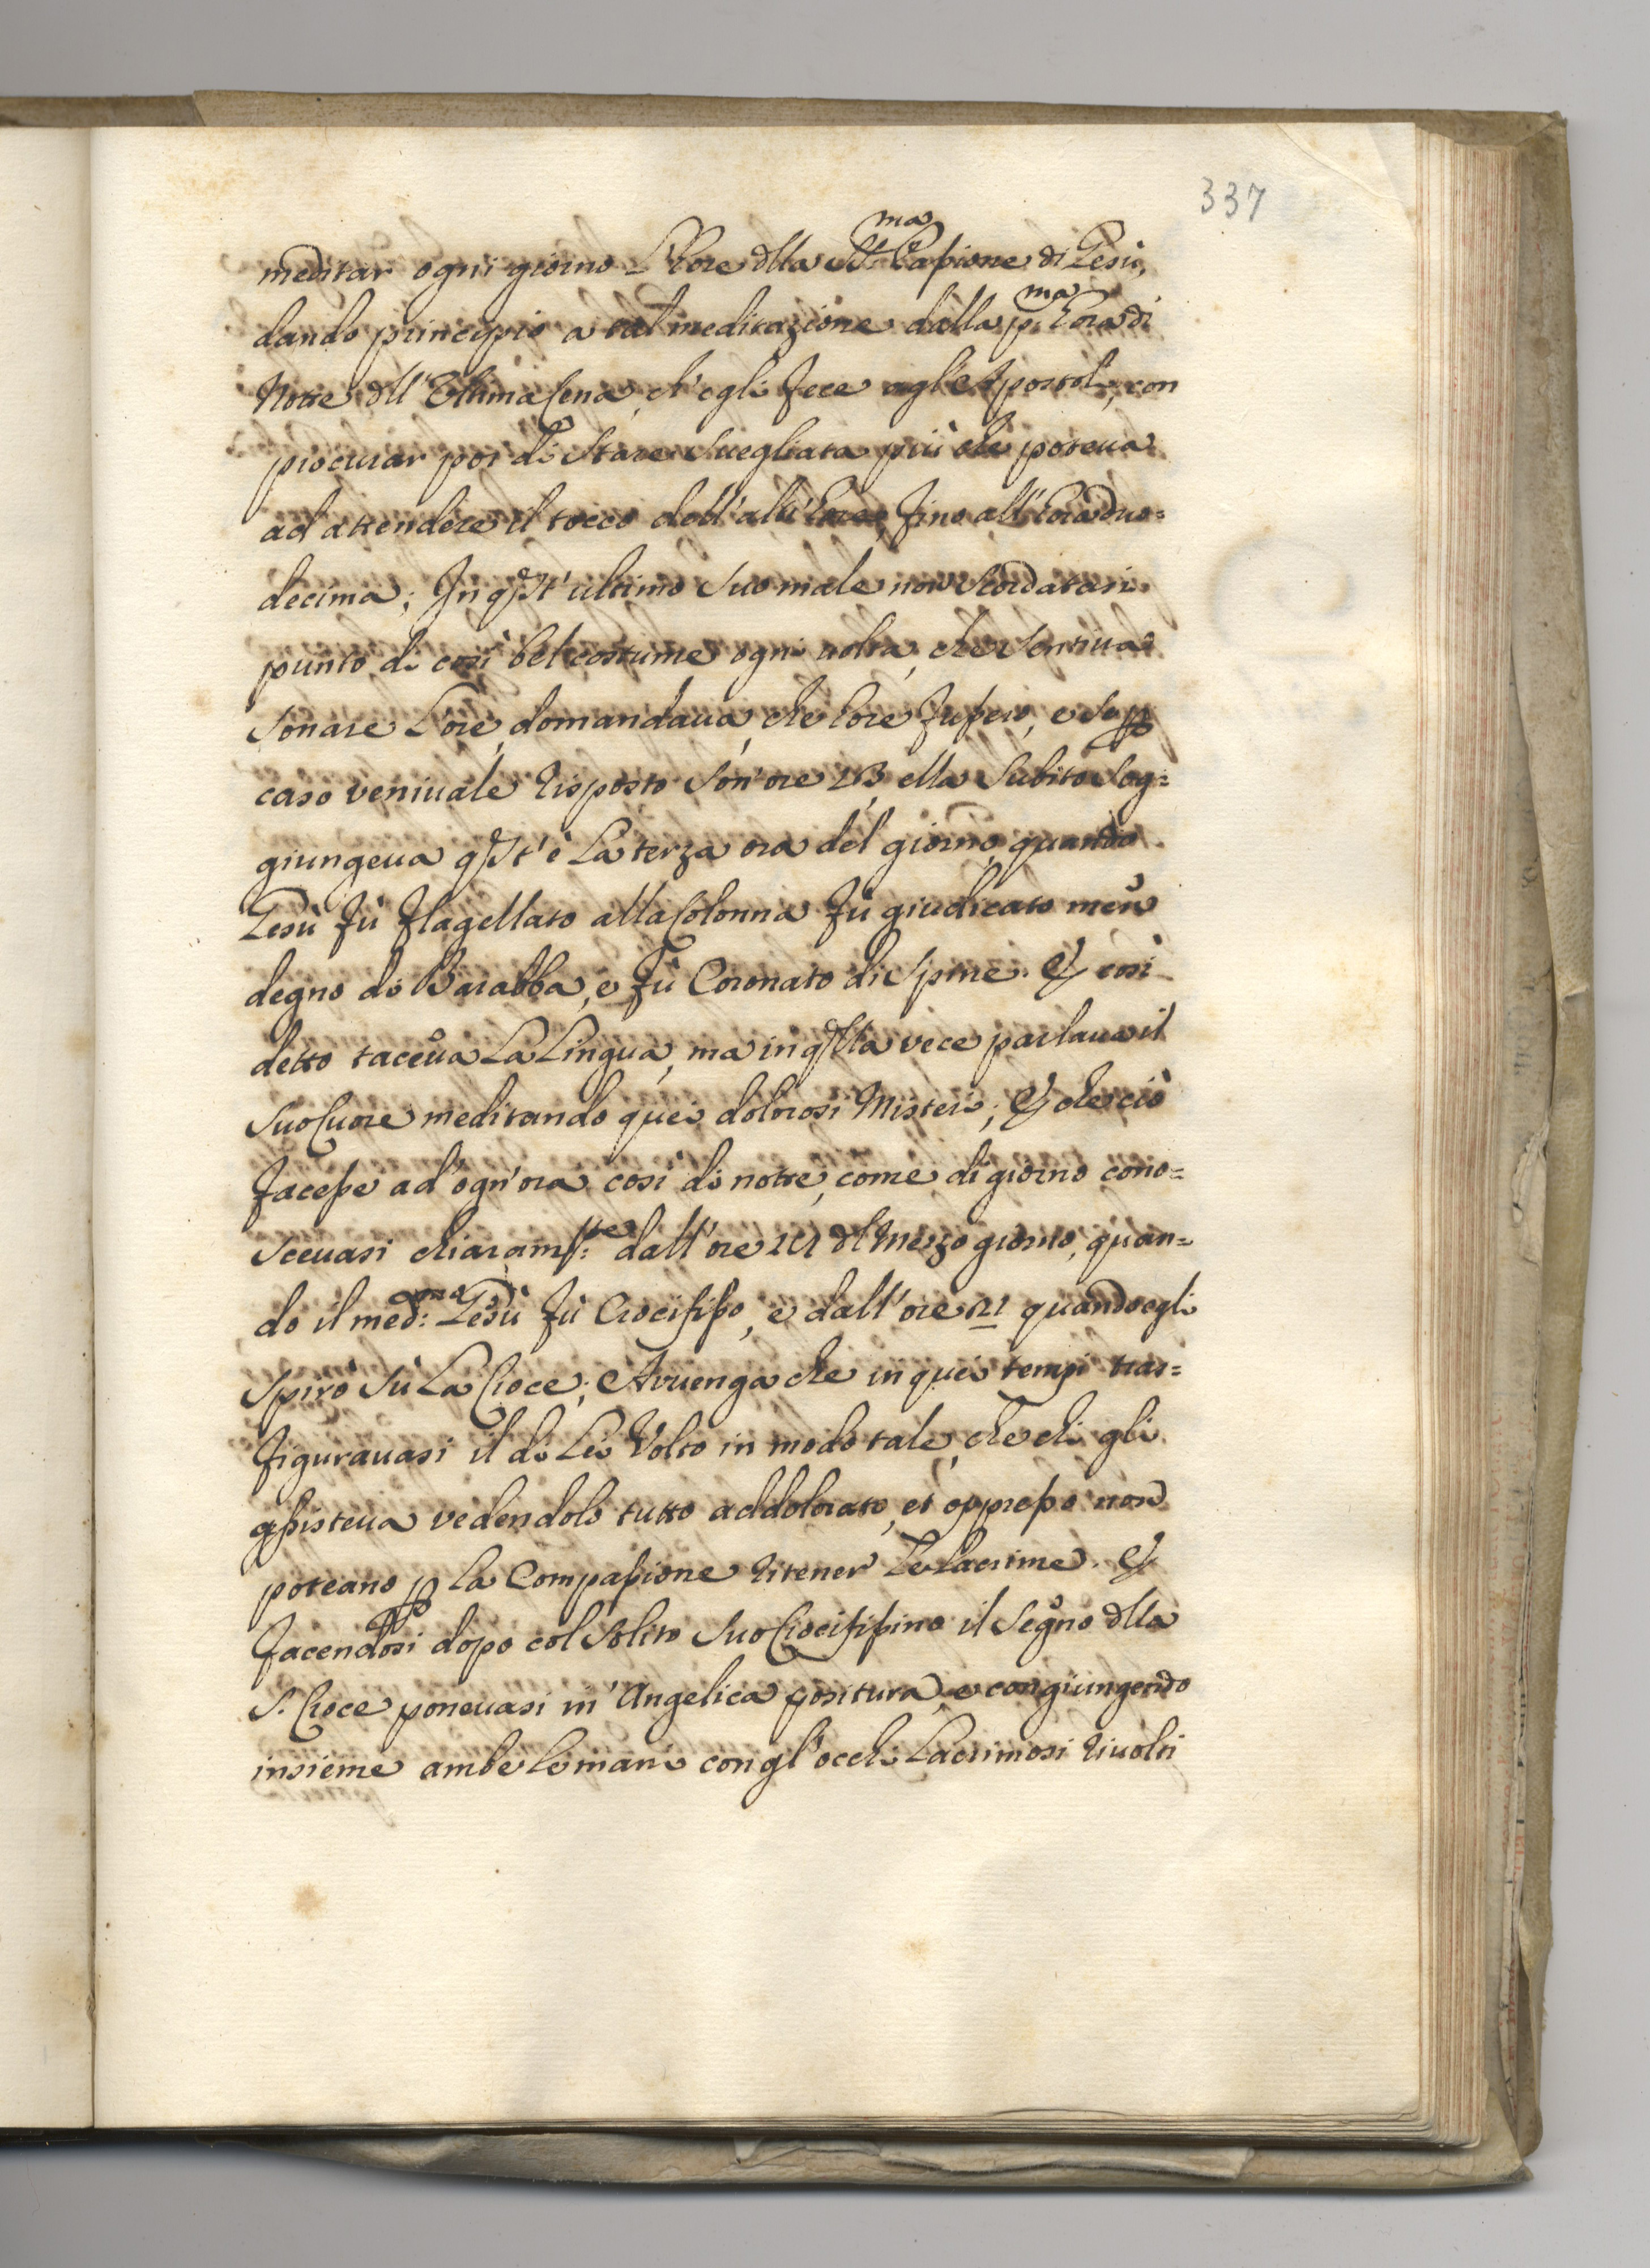 337
meditar ogni giorno L'Hore dlla SS.ma Passione di Gesù,
dando principio a tal meditazione dalla p.ma Hora di
Notte dll'Vltima Cena, ch'egli fece agl'Apostoli, con
procurar poi di Stare Suegliata più che poteua
ad attendere il tocco dell'altr'Hore, fino all'Hora duo=
decima; In qst'ultimo Suo male non Scordatasi
punto di così bel costume ogni uolta, che Sentiua
Sonare L'ore, domandaua, che hore fussero, e Se p
caso veniuale risposto Son'ore 13, ella Subito Sog=
giungeua qst'è La terza ora del giorno, quando
Gesù fù flagellato alla Colonna fù giudicato men
degno di Barabba, e fù Coronato di Spine. E così
detto taceua La Lingua, ma in qlla vece parlaua il
Suo Cuore meditando quei dolorosi Misteri; E che ciò
facesse ad ogn'ora così di notte, come di giorno cono=
sceuasi chiaram.te dall'ore dl mezzo giorno, quan=
do il med:mo Gesù fù Crocifisso, e dall'ore 21 quando egli
Spirò Sù La Croce; Avvenga che in quei tempi tras=
figurauasi il di Lei Volto in modo tale, che chi gli
assisteua vedendolo tutto addolorato, et oppresso non
poteano p La Compassione ritener Le Lacrime. E
facendosi dopo col Solito Suo Crocifissino il Segno dlla
S. Croce poneuasi in'Angelica positura, e congiungendo
insieme ambe Le mani con gl'occhi Lacrimosi riuolti